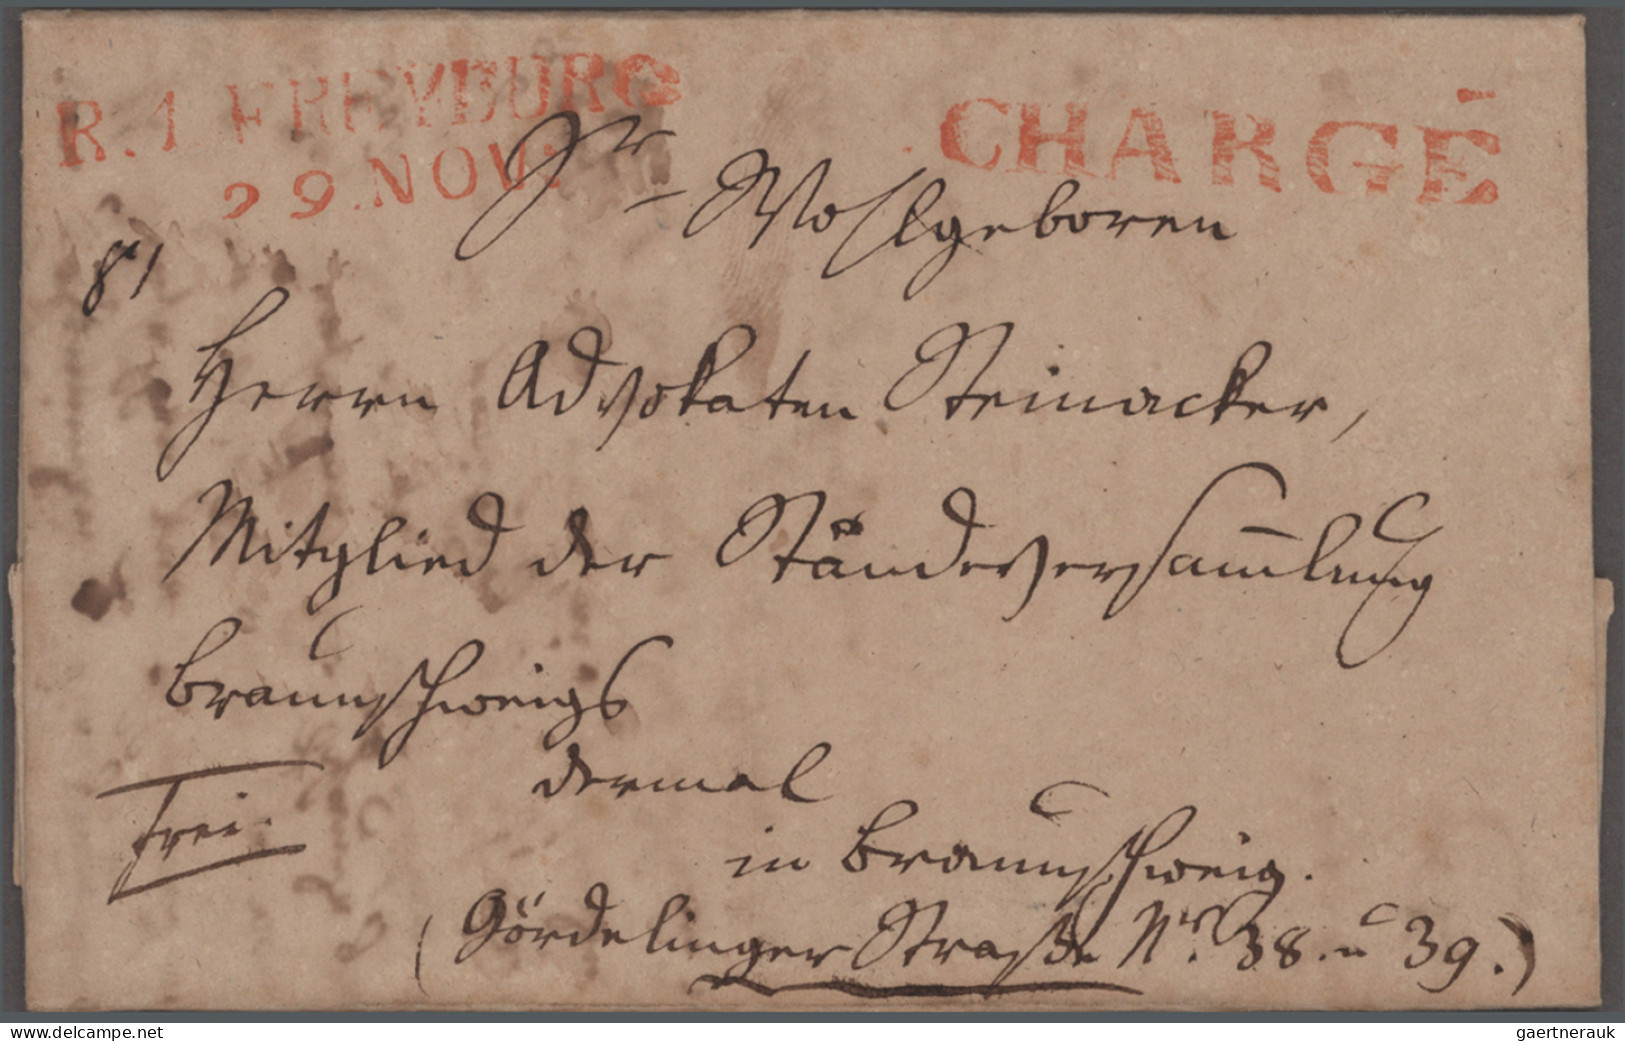 R. 1 FREYBURG
29. NOV:
CHARGÉ
Sr Wohlgeboren
81
Herrn Advokaten Steinacker,
Mitglied der Ständeversam̄lung
Braunschweigs
dermal
frei.
in Braunschweig.
(Gördelinger Straße Nr. 38. u 39.)
www.delcampe.net
gaertnerauk